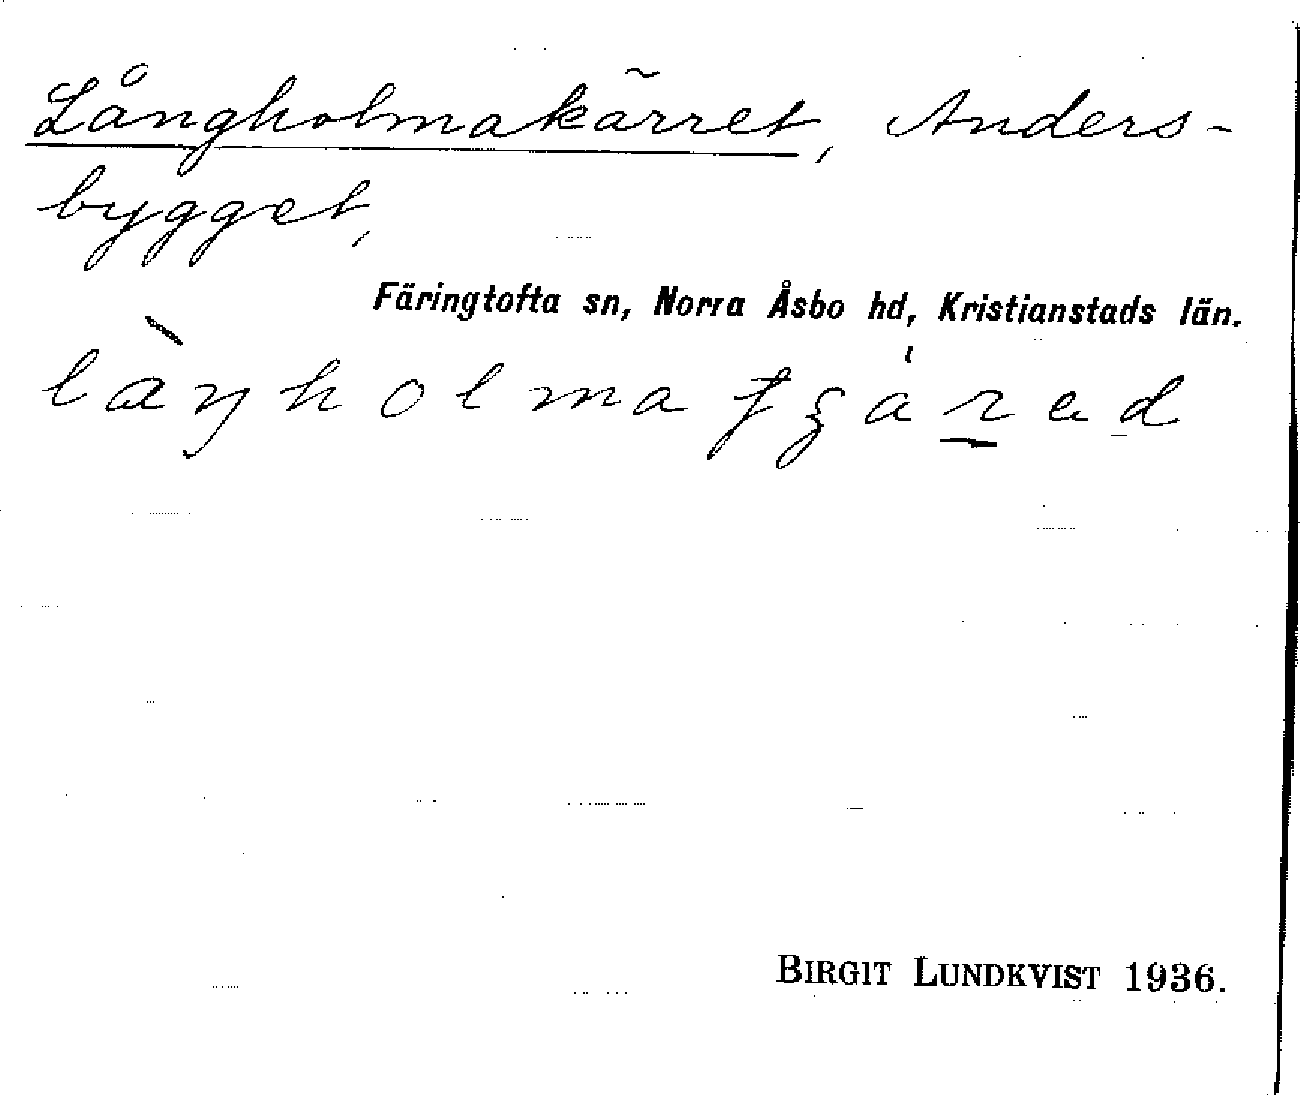 Långholmakärret, Anders-
bygget,
Färingtofta sn, Norra Åsbo hd, Kristianstads län.
làŋholmafʒáred
BIRGIT LUNDKVIST 1936.